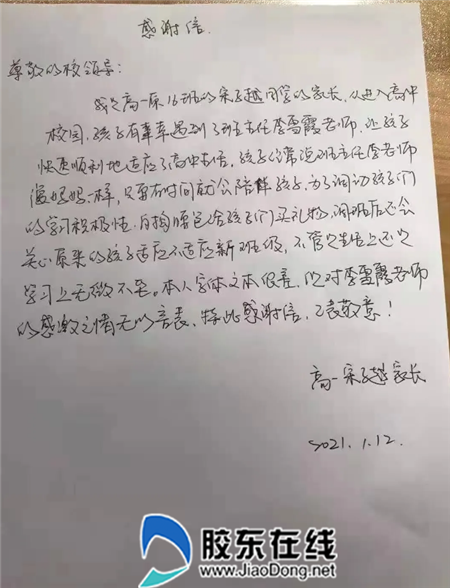 感谢信.
尊敬的校领导:
我是高一原16班的宋子越同学的家长,从进入高中
校园,孩子有幸遇到了班主任李雪霞老师,让孩子
快速顺利地适应了高中生活,孩子经常说班主任李老师
像妈妈一样,只要有时间就会陪伴孩子,为了调动孩子们
的学习积极性,自掏腰包给孩子们买礼物,调班后还会
关心原来的孩子适应不适应新班级,不管是生活上还是
学习上无微不至。本人字体文本很差,但对李雪霞老师
的感激之情无以言表,特此感谢信,以表敬意!
高一宋子越家长
2021.1.12.
胶东在线
www.JiaoDong.net